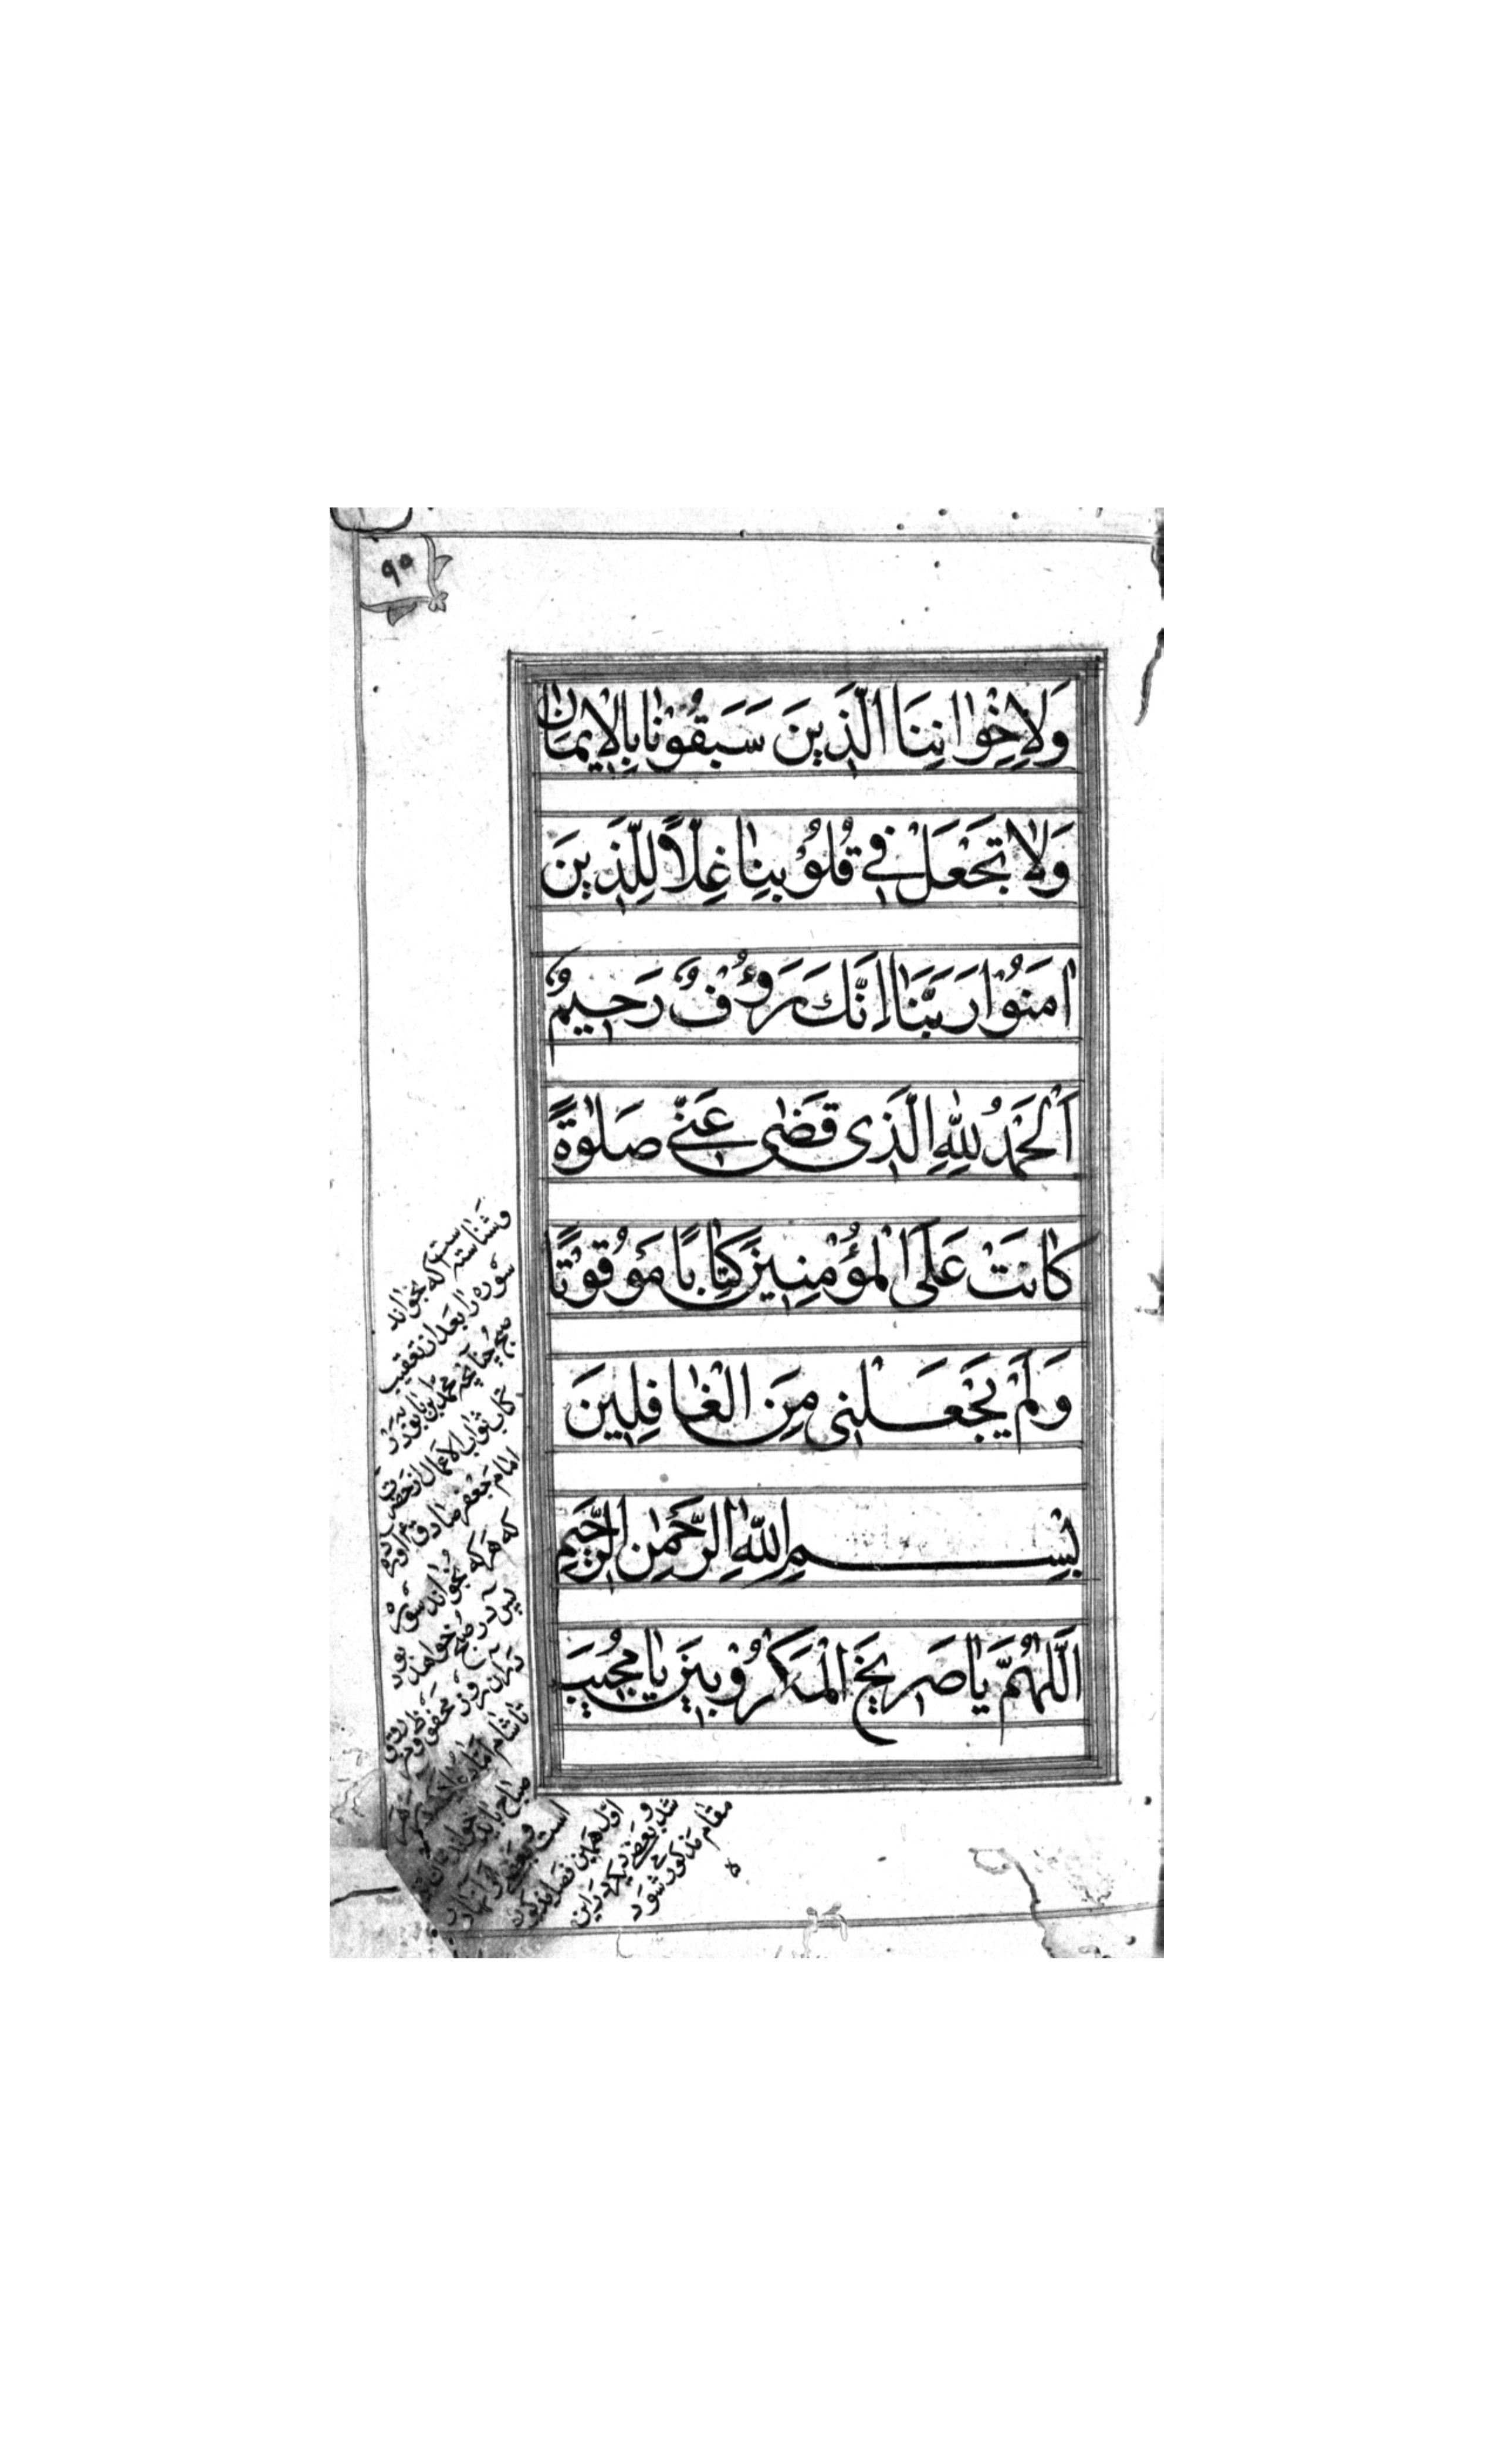 ۹۵
وَلِاِخْوٰانِنَا الَّذِينَ سَبَقُوْنٰا بِالْاِيمٰانِ
وَلٰا تَجْعَلْ فِي قُلُوْبِنٰا غِلّاً لِلَّذِينَ
اٰمَنُوْا رَبَّنٰا اِنَّكَ رَؤُفٌ رَحِيمٌ
اَلْحَمْدُ لِلّٰهِ الَّذِى قَضٰى عَنِّي صَلٰوةً
كٰانَتْ عَلَى الْمُؤْمِنِينَ كِتٰابًا مَوْقُوْتًا
وَلَمْ يَجْعَلْنِى مِنَ الْغٰافِلِينَ
بِسْمِ اللّٰهِ الرَّحْمٰنِ الرَّحِيمِ
اَللّٰهُمَّ يٰا صَرِيخَ الْمَكْرُوْبِينَ يٰا مُجِيبَ
وشناسته است كه بخواند
سوره را بعد از تعقيب
صبح چنانچه محمد بن بابويه در
كتاب ثواب الاعمال از حضرت
امام جعفر صادق ع آورده
كه هركه بخواند سوره
يس در صبح خواهد بود
در آن روز محفوظ و مرزوق
تا شام
صباح بايد خواند
است و بعضى
اول همين
شد و بعضى ديگر در اين
مقام مذكور شود